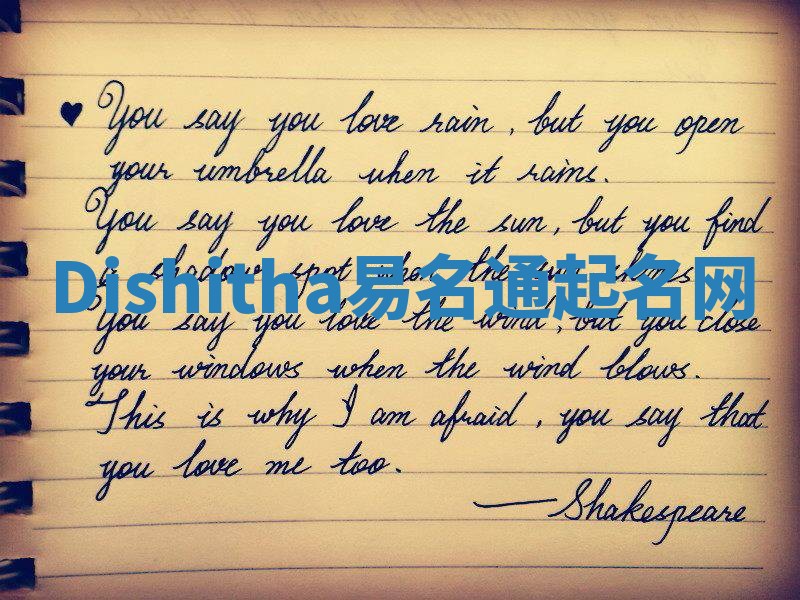 ♥ You say you love rain, but you open
your umbrella when it rains.
You say you love the sun, but you find
a shadow spot when the sun shines
Dishitha易名通起名网
You say you love the wind, but you close
your windows when the wind blows.
This is why I am afraid, you say that
you love me too.
—Shakespeare